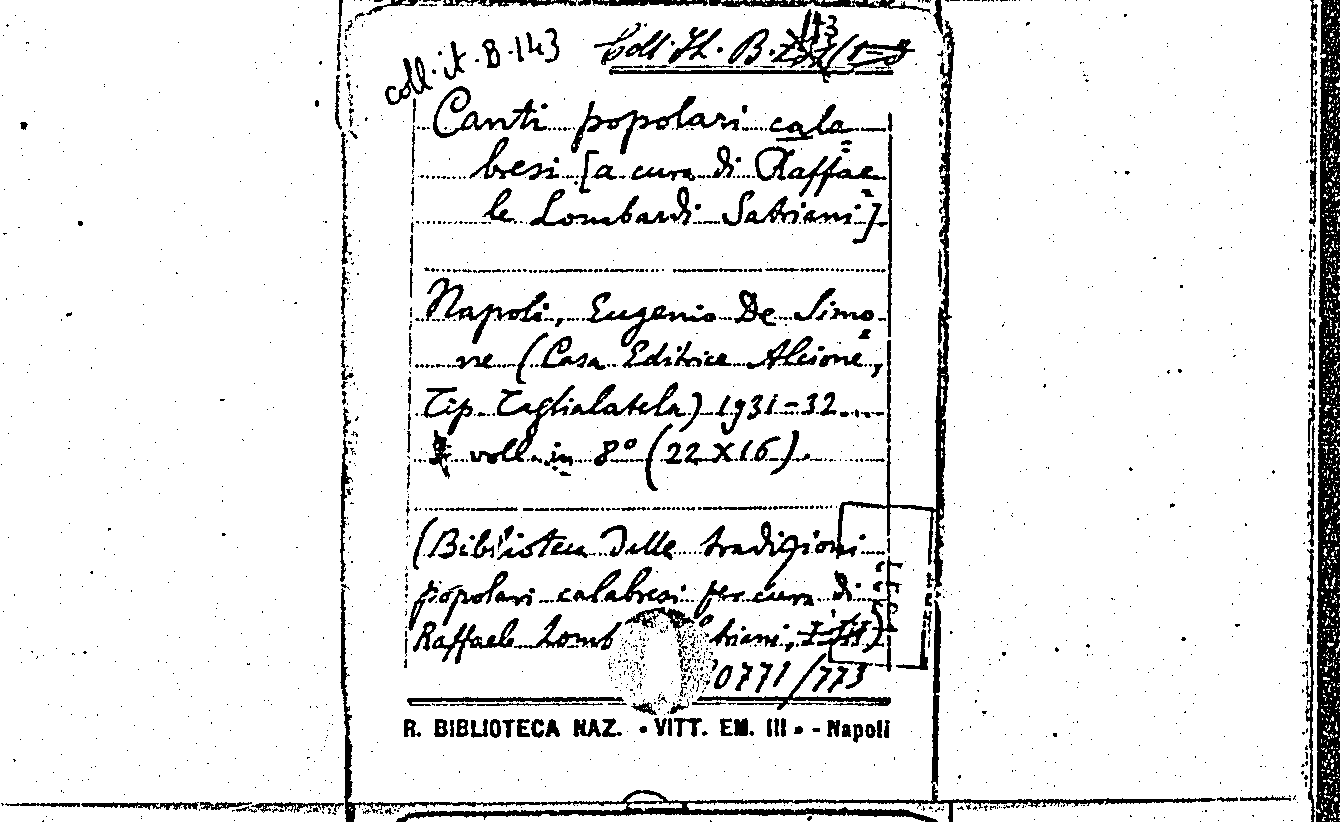 coll. it. B. 143
Coll. It. B. 143 (1-3
Canti popolari cala=
bresi [a cura di Raffae=
le Lombardi Satriani].
Napoli, Eugenio De Simo=
ne (Casa Editrice Alcione,
Tip. Taglialatela) 1931-32....
voll. in 8° (22 X 16).
(Biblioteca delle tradizioni
popolari calabresi per cura di
Raffaele Lomb triani, I-III)
0771/773
R. BIBLIOTECA NAZ. «VITT. EM. III» - Napoli